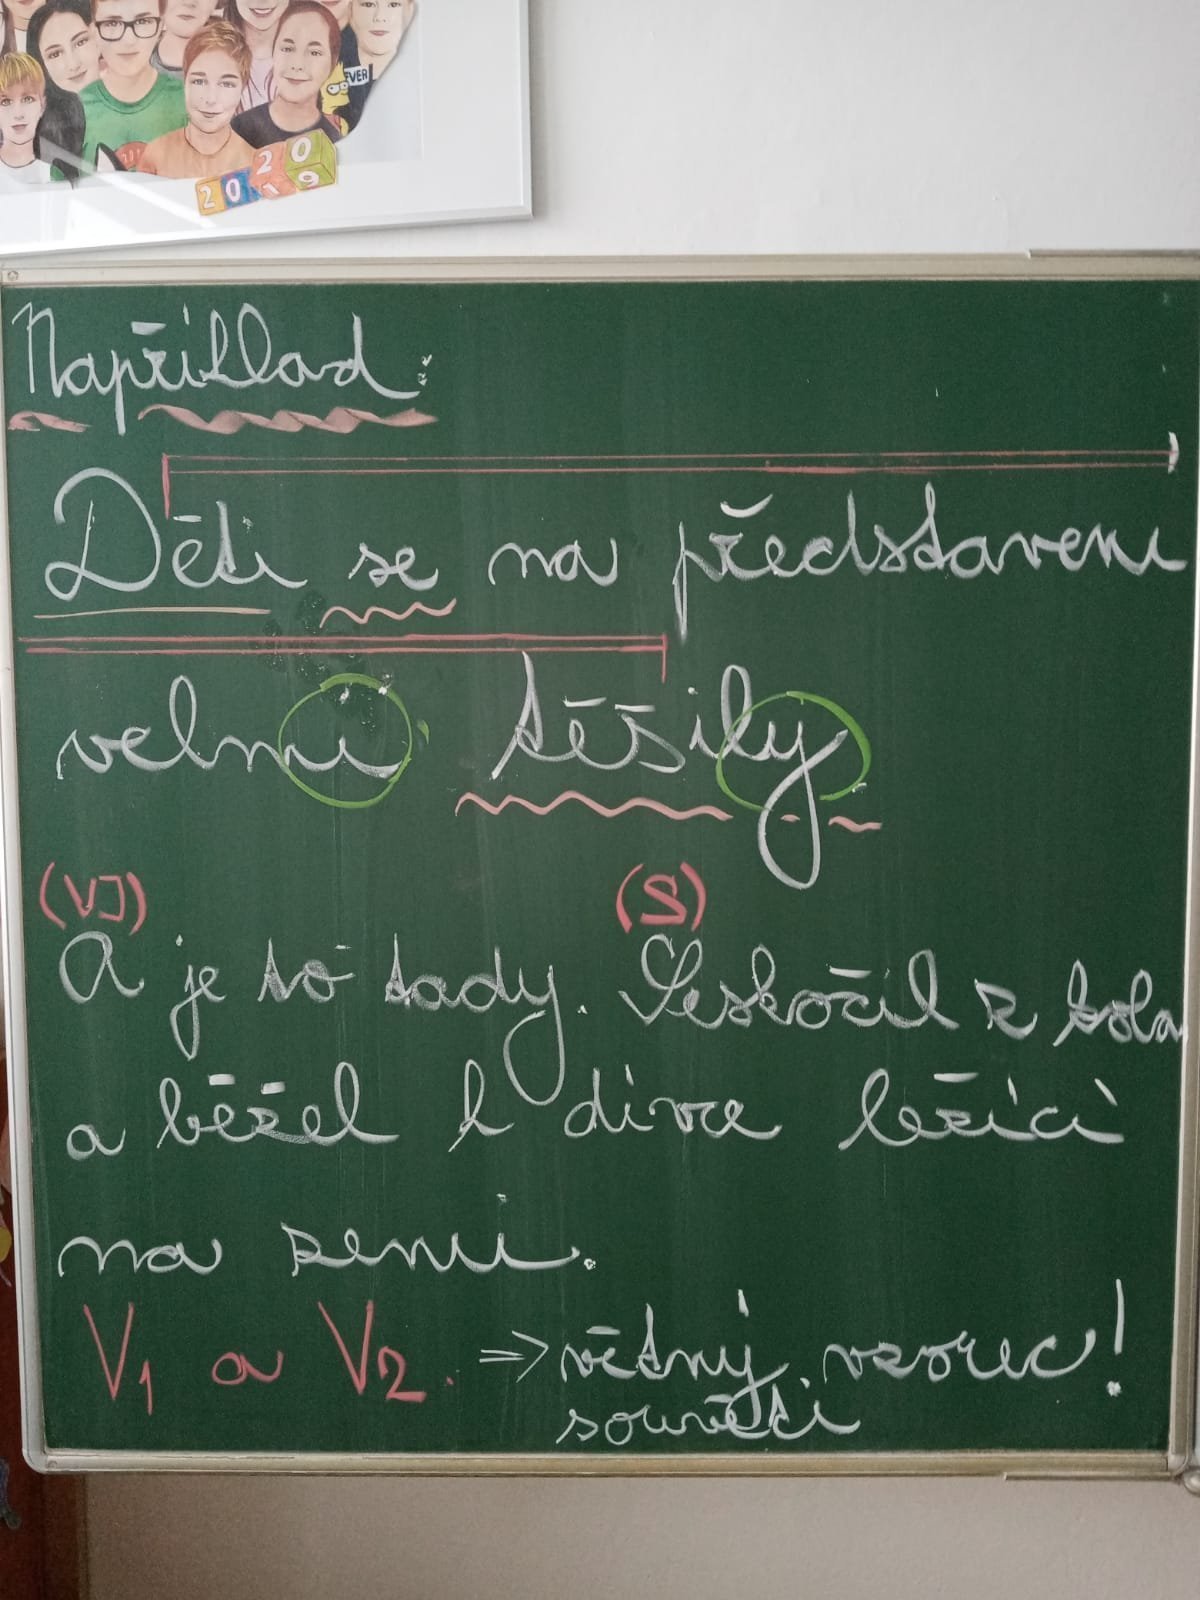 EVER
20
2019
Například:
Děti se na představení
velmi těšily
(VJ) (S)
A je to tady. Seskočil z kola
a běžel k dívce ležící
na zemi.
V1 a V2. => větný vzorec!
souvětí